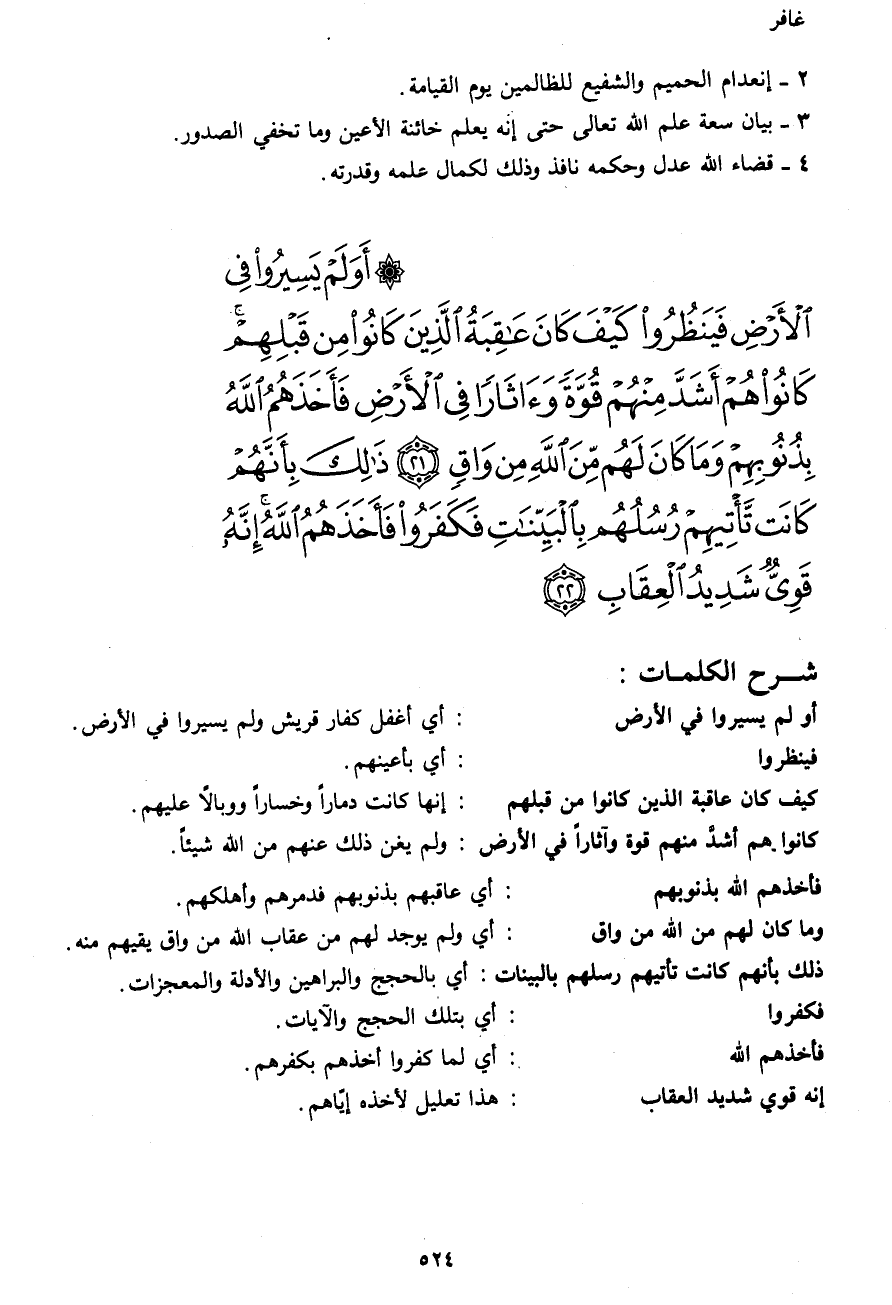 غافر
٢ ـ إنعدام الحميم والشفيع للظالمين يوم القيامة.
٣ ـ بيان سعة علم الله تعالى حتى إنه يعلم خائنة الأعين وما تخفي الصدور.
٤ ـ قضاء الله عدل وحكمه نافذ وذلك لكمال علمه وقدرته.
۞ أَوَلَمْ يَسِيرُوا۟ فِى
ٱلْأَرْضِ فَيَنظُرُوا۟ كَيْفَ كَانَ عَـٰقِبَةُ ٱلَّذِينَ كَانُوا۟ مِن قَبْلِهِمْ ۚ
كَانُوا۟ هُمْ أَشَدَّ مِنْهُمْ قُوَّةً وَءَاثَارًا فِى ٱلْأَرْضِ فَأَخَذَهُمُ ٱللَّهُ
بِذُنُوبِهِمْ وَمَا كَانَ لَهُم مِّنَ ٱللَّهِ مِن وَاقٍ ٢١ ذَٰلِكَ بِأَنَّهُمْ
كَانَت تَّأْتِيهِمْ رُسُلُهُم بِٱلْبَيِّنَـٰتِ فَكَفَرُوا۟ فَأَخَذَهُمُ ٱللَّهُ ۚ إِنَّهُۥ
قَوِىٌّ شَدِيدُ ٱلْعِقَابِ ٢٢
شـــرح الكلمـات :
أو لم يسيروا في الأرض : أي أغفل كفار قريش ولم يسيروا في الأرض.
فينظروا : أي بأعينهم.
كيف كان عاقبة الذين كانوا من قبلهم : إنها كانت دماراً وخساراً ووبالاً عليهم.
كانوا هم أشدَّ منهم قوة وآثاراً في الأرض : ولم يغن ذلك عنهم من الله شيئاً.
فأخذهم الله بذنوبهم : أي عاقبهم بذنوبهم فدمرهم وأهلكهم.
وما كان لهم من الله من واق : أي ولم يوجد لهم من عقاب الله من واق يقيهم منه.
ذلك بأنهم كانت تأتيهم رسلهم بالبينات : أي بالحجج والبراهين والأدلة والمعجزات.
فكفروا : أي بتلك الحجج والآيات.
فأخذهم الله : أي لما كفروا أخذهم بكفرهم.
إنه قوي شديد العقاب : هذا تعليل لأخذه إيّاهم.
٥٢٤